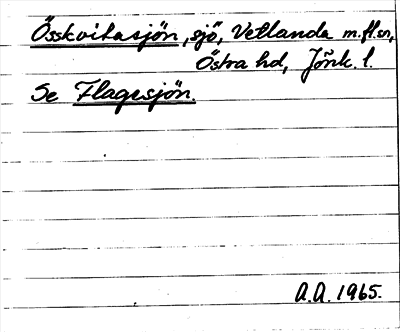 Össkvitasjön, sjö, Vetlanda m.fl. sn,
Östra hd, Jönk. l.
Se Flagesjön.
A.A. 1965.